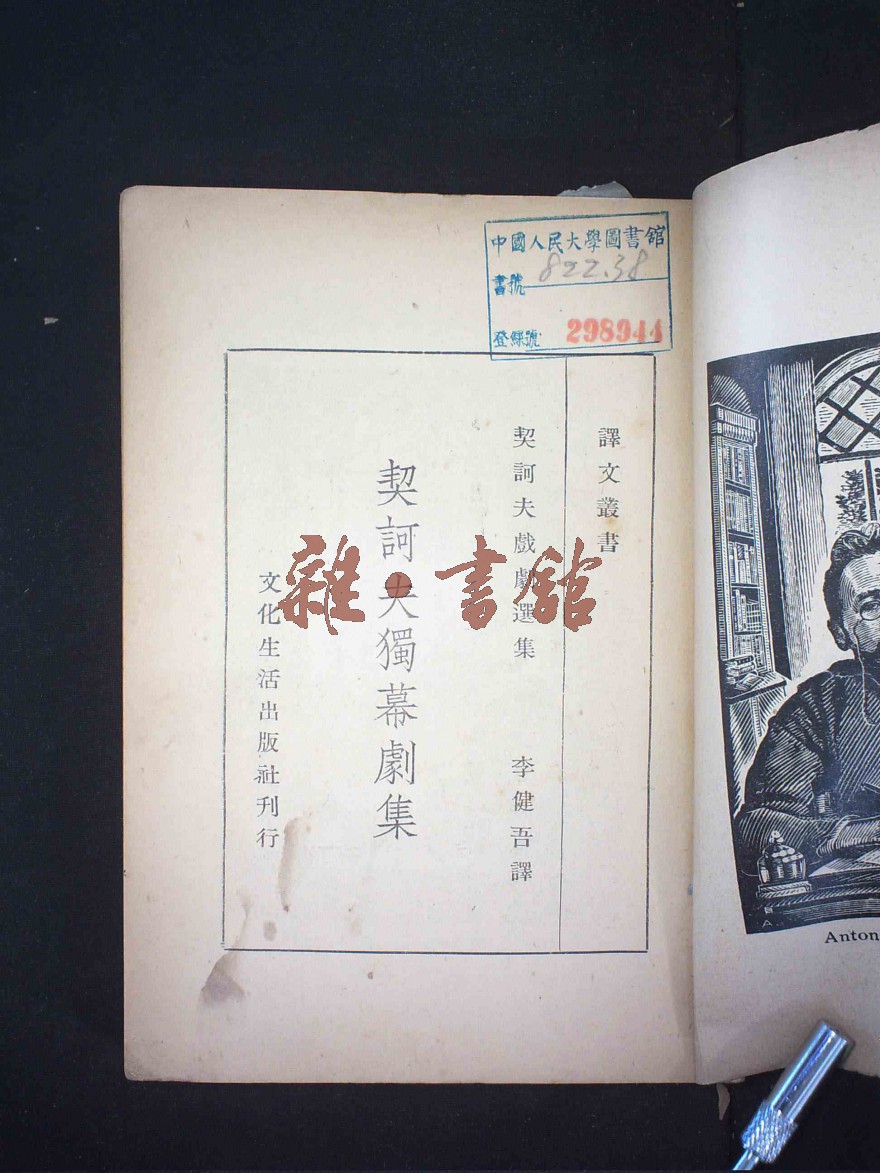 中國人民大學圖書館
書號 822.38
登錄號 298944
譯文叢書
契訶夫戲劇選集 李健吾譯
契訶夫獨幕劇集
文化生活出版社刊行
雜·書館
Anton